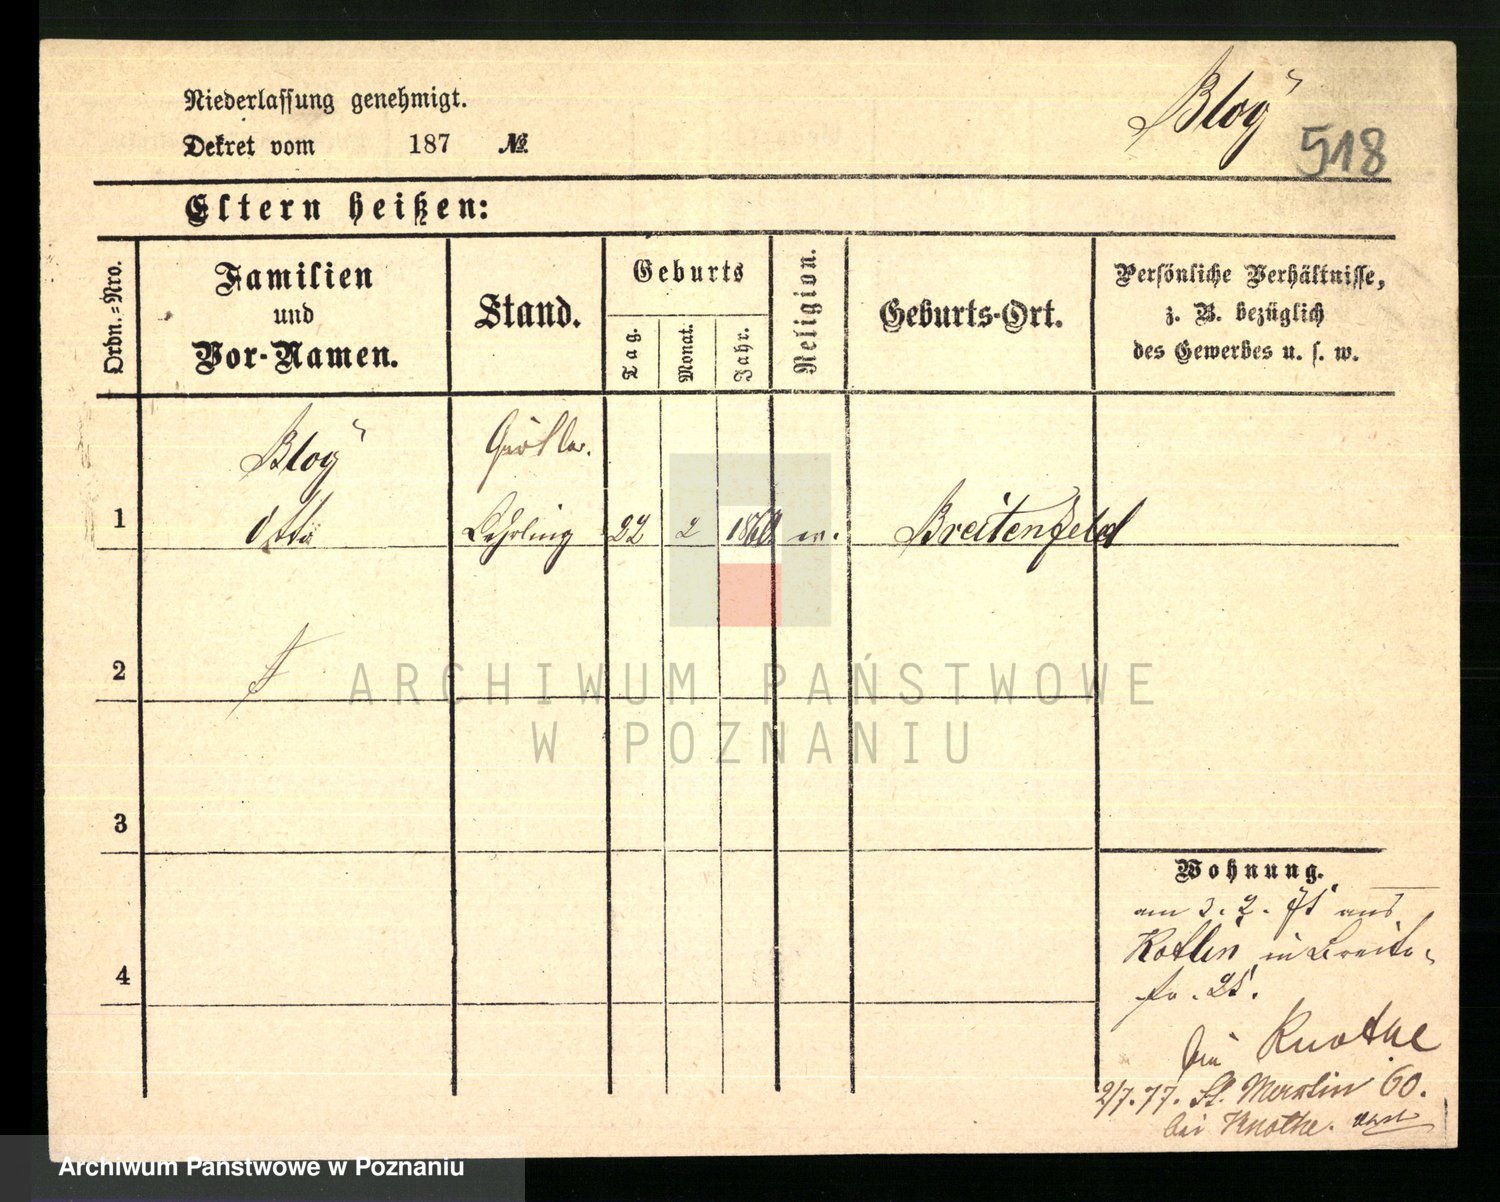 Niederlassung genehmigt.
Dekret vom 187 №
Bloy
518
Eltern heißen:
Ordn.-Nro.
Familien
und
Vor-Namen.
Stand.
Geburts
Tag.
Monat.
Jahr.
Religion.
Geburts-Ort.
Persönliche Verhältnisse,
z. B. bezüglich
des Gewerbes u. s. w.
Bloy
1
Otto
Lehrling
22
2
ev.
Breitenfeld
2
3
4
Wohnung.
am 3. 2. aus
Kotlin in Breite-
25.
bei Knothe
2/7.77. St. Martin 60.
bei Knothe.
ARCHIWUM PAŃSTWOWE
W POZNANIU
Archiwum Państwowe w Poznaniu